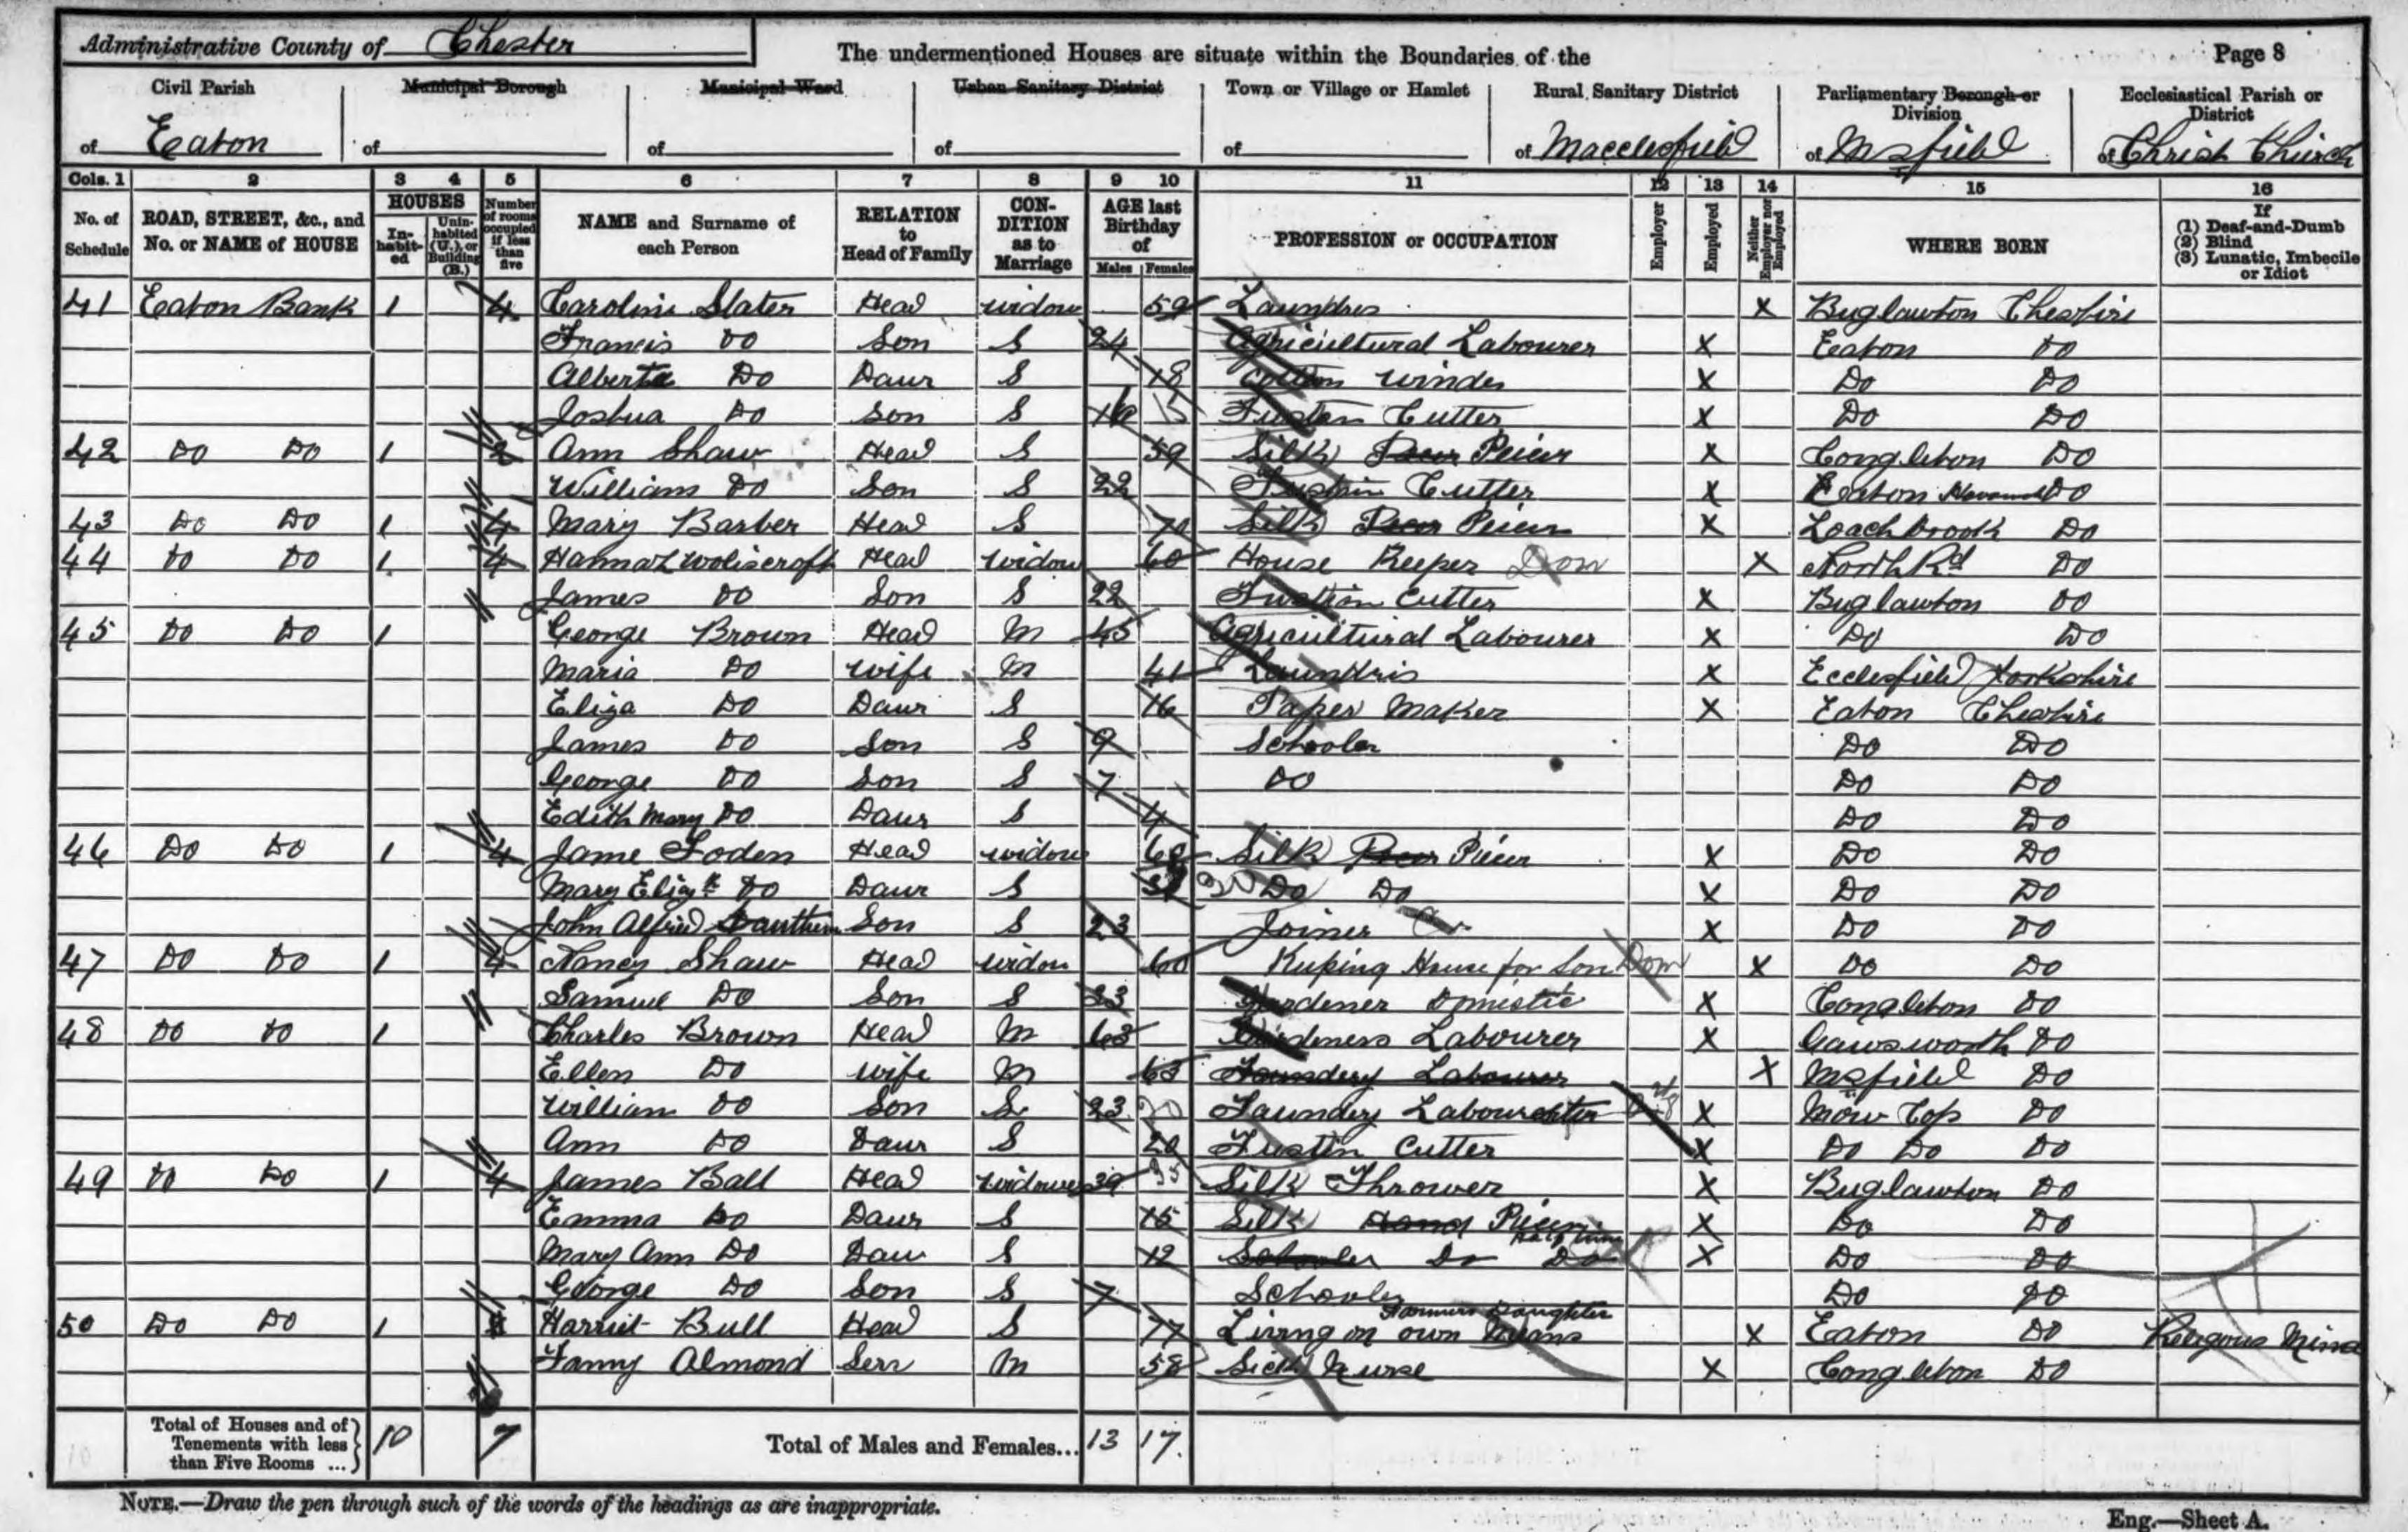 Administrative County of Chester
The undermentioned Houses are situate within the Boundaries of the
Page 8
Civil Parish of Eaton
Municipal Borough of
Municipal Ward of
Urban Sanitary District of
Town or Village or Hamlet of
Rural Sanitary District of Macclesfield
Parliamentary Borough or Division of Mcsfield
Ecclesiastical Parish or District of Christ Church
Cols. 1 2 3 4 5 6 7 8 9 10 11 12 13 14 15 16
No. of Schedule
ROAD, STREET, &c., and No. or NAME of HOUSE
HOUSES
In-habit-ed
Unin-habited (U.), or Building (B.)
Number of rooms occupied if less than five
NAME and Surname of each Person
RELATION to Head of Family
CON-DITION as to Marriage
AGE last Birthday of
Males Females
PROFESSION or OCCUPATION
Employer
Employed
Neither Employer nor Employed
WHERE BORN
If
(1) Deaf-and-Dumb
(2) Blind
(3) Lunatic, Imbecile or Idiot
41 Eaton Bank 1 4 Caroline Slater Head widow 59 Laundres X Buglawton Cheshire
Francis Do Son S 24 Agricultural Labourer X Eaton Do
Alberta Do Daur S 18 Cotton Winder X Do Do
Joshua Do Son S 15 Fustan Cutter X Do Do
42 Do Do 1 2 Ann Shaw Head S 59 Silk Piecer X Congleton Do
William Do Son S 22 Fustain Cutter X Eaton Do
43 Do Do 1 4 Mary Barber Head S 70 Silk Piecer X Loachbrook Do
44 Do Do 1 4 Hannah Woliscroft Head widow 60 House Keeper Dom X North Rd Do
James Do Son S 22 Fustian Cutter X Buglawton Do
45 Do Do 1 George Brown Head M 45 Agricultural Labourer X Do Do
Maria Do wife M 41 Laundris X Ecclesfield Yorkshire
Eliza Do Daur S 16 Paper Maker X Eaton Cheshire
James Do Son S 9 Schooler Do Do
George Do Son S 7 Do Do Do
Edith Mary Do Daur S 4 Do Do
46 Do Do 1 4 Jame Foden Head widow 68 Silk Piecer X Do Do
Mary Elizth Do Daur S Do Do X Do Do
John Alfred Son S 23 Joiner X Do Do
47 Do Do 1 4 Nancy Shaw Head widow 60 Keeping House for Son Dom X Do Do
Samuel Do Son S 33 Gardener Domistic X Congleton Do
48 Do Do 1 Charles Brown Head M 63 Gardeners Labourer X Gawsworth Do
Ellen Do wife M 65 Foundery Labourer X Mcsfield Do
William Do Son S 23 Foundery Labourer X Mow Cop Do
Ann Do Daur S 20 Fustin Cutter X Do Do Do
49 Do Do 1 4 James Ball Head widower 39 Silk Thrower X Buglawton Do
Emma Do Daur S 15 Silk Hand Piecer X Do Do
Mary Ann Do Daur S 12 Schooler Do Do Half time X Do Do
George Do Son S 7 Schooler Do Do
50 Do Do 1 Harriet Bull Head S 77 Living on own Means Farmers Daughter X Eaton Do Religous Mind
Fanny Almond Serv M 58 Sick Nurse X Congleton Do
Total of Houses and of Tenements with less than Five Rooms ... 10 7
Total of Males and Females... 13 17
NOTE.—Draw the pen through such of the words of the headings as are inappropriate.
Eng.—Sheet A.